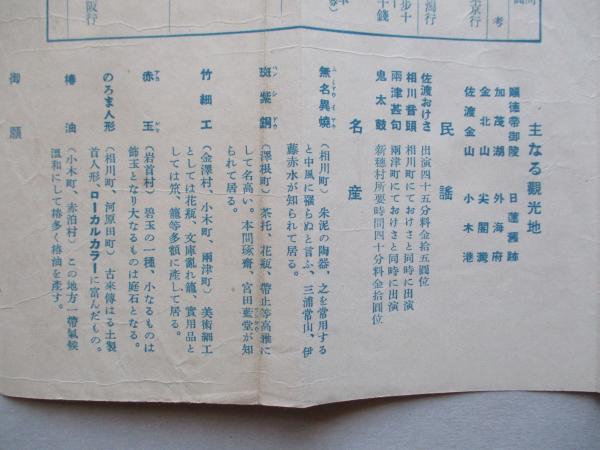 考
金京行
潟行
歩十
十錢
阪行
主なる觀光地
順德帝御陵 日蓮舊跡
加茂湖 外海府
金北山 尖閣灣
佐渡金山 小木港
民謠
佐渡おけさ 出演四十五分料金拾五圓位
相川音頭 相川町にておけさと同時に出演
兩津甚句 兩津町にておけさと同時に出演
鬼太鼓 新穗村所要時間四十分料金拾圓位
名產
無名異燒 (相川町) 朱泥の陶器、之を常用する
と中風に罹らぬと言ふ、三浦常山、伊
藤赤水が知られて居る。
斑紫銅 (澤根町) 茶托、花瓶、帶止等高雅に
して名高い。本間琢齋、宮田藍堂が知
られて居る。
竹細工 (金澤村、小木町、兩津町) 美術細工
としては花瓶、文庫亂れ籠、實用品と
しては笊、籠等多額に產して居る。
赤玉 (岩首村) 碧玉の一種、小なるものは
飾玉となり大なるものは庭石となる。
のろま人形 (相川町、河原田町) 古來傳はる土製
首人形、ローカルカラーに富んだもの。
椿油 (小木町、赤泊村) この地方一帶氣候
溫和にして椿多く椿油を產す。
御願